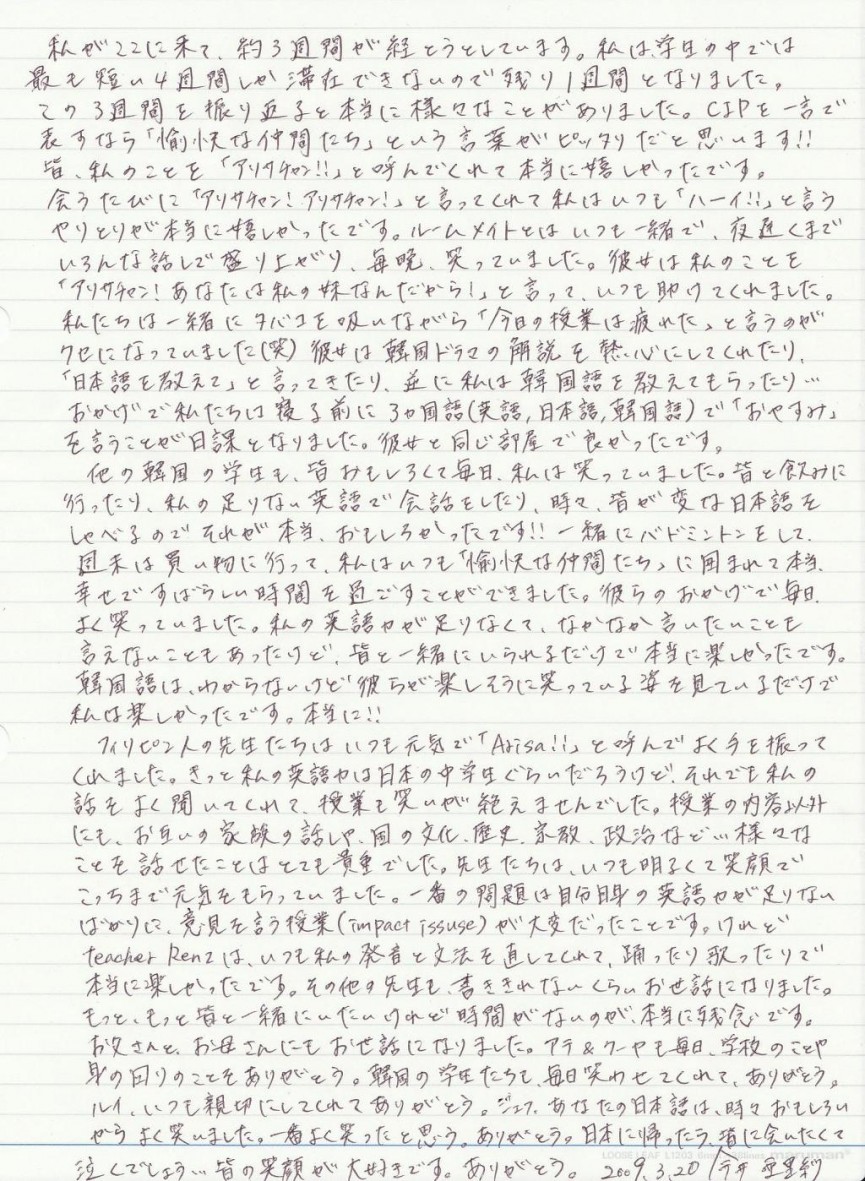 私がここに来て、約3週間が経とうとしています。私は、学生の中では
最も短い4週間しか滞在できないので残り1週間となりました。
この3週間を振り返ると本当に様々なことがありました。CIPを一言で
表すなら「愉快な仲間たち」という言葉がピッタリだと思います!!
皆、私のことを「アリサチャン!!」と呼んでくれて本当に嬉しかったです。
会うたびに「アリサチャン!アリサチャン!」と言ってくれて私はいつも「ハーイ!!」と言う
やりとりが本当に嬉しかったです。ルームメイトとはいつも一緒で、夜遅くまで
いろんな話しで盛り上がり、毎晩、笑っていました。彼女は私のことを
「アリサチャン!あなたは私の妹なんだから!」と言って、いつも助けてくれました。
私たちは一緒にタバコを吸いながら「今日の授業は疲れた」と言うのが
クセになっていました(笑)彼女は韓国ドラマの解説を熱心にしてくれたり、
「日本語を教えて」と言ってきたり、並に私は韓国語を教えてもらったり…
おかげで私たちは寝る前に3ヵ国語(英語,日本語,韓国語)で「おやすみ」
を言うことが日課となりました。彼女と同じ部屋で良かったです。
他の韓国の学生も、皆おもしろくて毎日、私は笑っていました。皆と飲みに
行ったり、私の足りない英語で会話をしたり、時々、皆が変な日本語を
しゃべるのでそれが本当、おもしろかったです!!一緒にバドミントンをして、
週末は買い物に行って、私はいつも「愉快な仲間たち」に囲まれて本当、
幸せですばらしい時間を過ごすことができました。彼らのおかげで毎日、
よく笑っていました。私の英語力が足りなくて、なかなか言いたいことも
言えないこともあったけど、皆と一緒にいられるだけで本当に楽しかったです。
韓国語は、わからないけど彼らが楽しそうに笑っている姿を見ているだけで
私は楽しかったです。本当に!!
フィリピン人の先生たちはいつも元気で「Arisa!!」と呼んでよく手を振って
くれました。きっと私の英語力は日本の中学生ぐらいだろうけど、それでも私の
話をよく聞いてくれて、授業も笑いが絶えませんでした。授業の内容以外
にも、お互いの家族の話しや、国の文化、歴史、宗教、政治など…様々な
ことを話せたことはとても貴重でした。先生たちは、いつも明るくて笑顔で
こっちまで元気をもらっていました。一番の問題は自分自身の英語力が足りない
ばかりに、意見を言う授業(impact issuse)が大変だったことです。けれど
teacher Renzは、いつも私の発音と文法を直してくれて、踊ったり歌ったりで
本当に楽しかったです。その他の先生も、書ききれないくらいお世話になりました。
もっと、もっと皆と一緒にいたいけれど時間がないのが、本当に残念です。
お父さんと、お母さんにもお世話になりました。アテ&クーヤも毎日、学校のことや
身の回りのことをありがとう。韓国の学生たちも、毎日笑わせてくれて、ありがとう。
ルイ、いつも親切にしてくれてありがとう。ジェフ、あなたの日本語は、時々おもしろい
からよく笑いました。一番よく笑ったと思う。ありがとう。日本に帰ったら、皆に会いたくて
泣くでしょう…皆の笑顔が大好きです。ありがとう。 2009.3.20 今井 亜里紗
LOOSE LEAF L1203 maruman